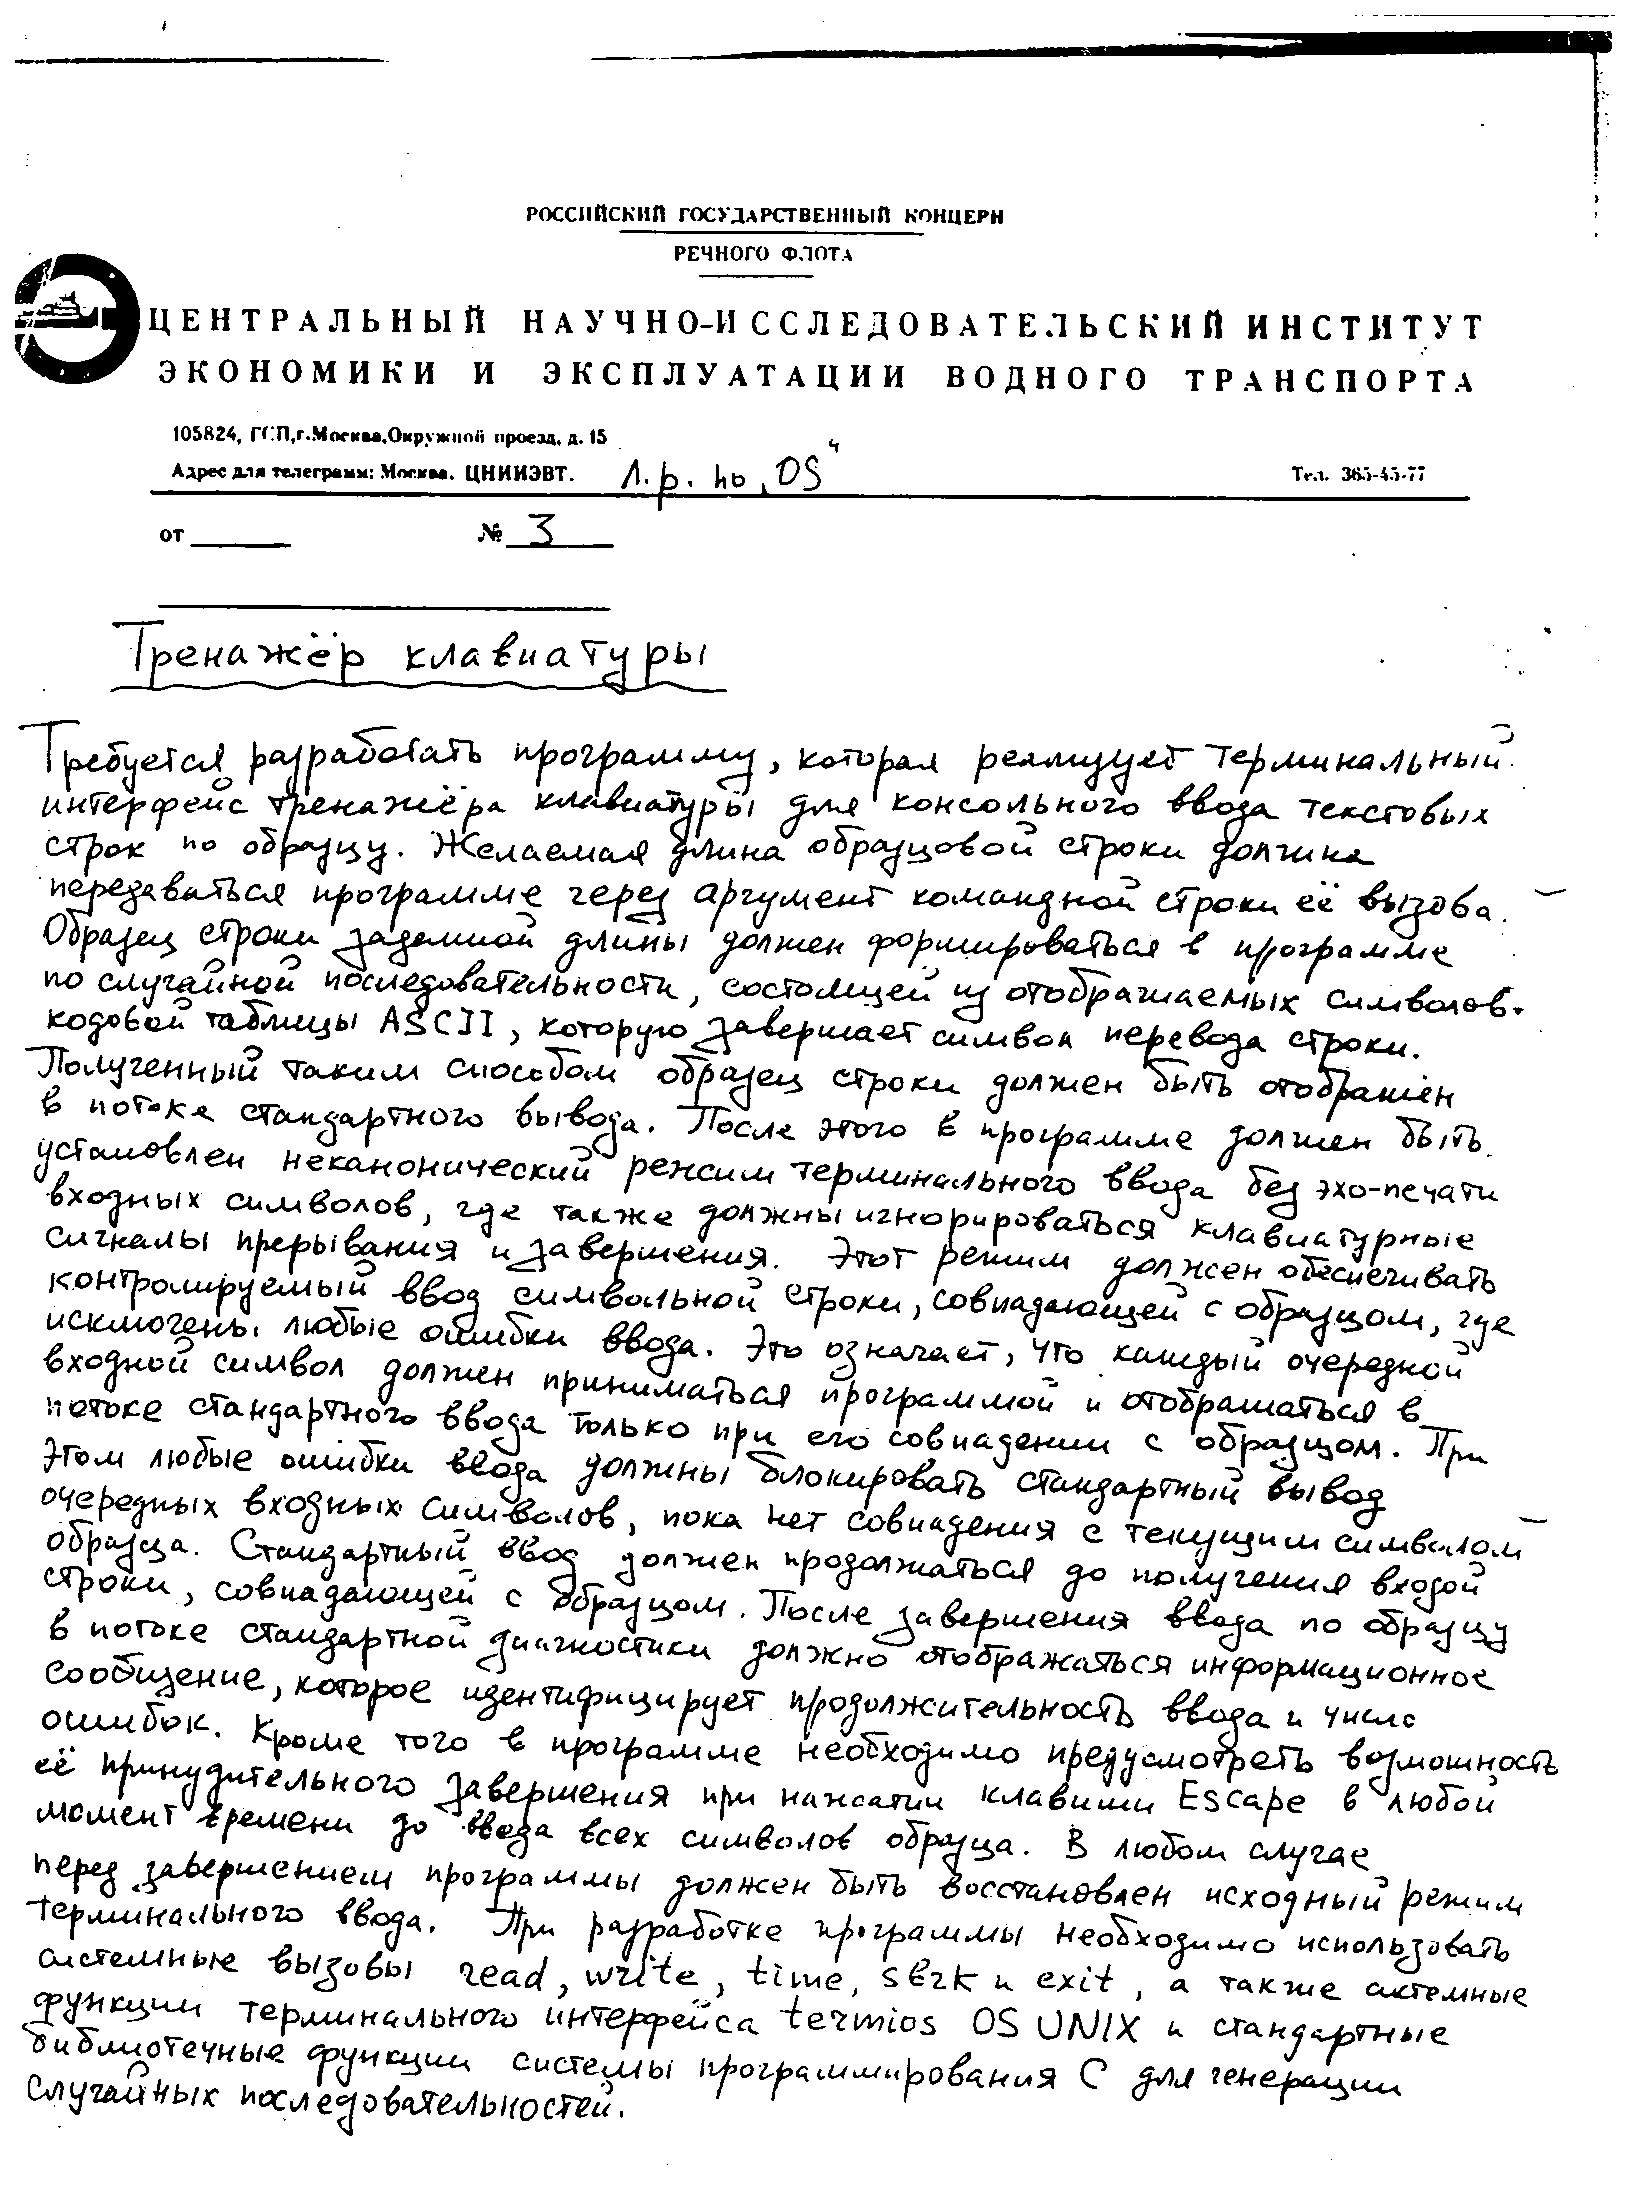 РОССИЙСКИЙ ГОСУДАРСТВЕННЫЙ КОНЦЕРН
РЕЧНОГО ФЛОТА
ЦЕНТРАЛЬНЫЙ НАУЧНО-ИССЛЕДОВАТЕЛЬСКИЙ ИНСТИТУТ
ЭКОНОМИКИ И ЭКСПЛУАТАЦИИ ВОДНОГО ТРАНСПОРТА
105824, ГСП, г. Москва, Окружной проезд, д. 15
Адрес для телеграмм: Москва. ЦНИИЭВТ. Л.р. по „OS“ Тел. 365-45-77
от № 3
Тренажёр клавиатуры
Требуется разработать программу, которая реализует терминальный
интерфейс тренажёра клавиатуры для консольного ввода текстовых
строк по образцу. Желаемая длина образцовой строки должна
передаваться программе через аргумент командной строки её вызова.
Образец строки заданной длины должен формироваться в программе
по случайной последовательности, состоящей из отображаемых символов
кодовой таблицы ASCII, которую завершает символ перевода строки.
Полученный таким способом образец строки должен быть отображён
в потоке стандартного вывода. После этого в программе должен быть
установлен неканонический режим терминального ввода без эхо-печати
входных символов, где также должны игнорироваться клавиатурные
сигналы прерывания и завершения. Этот режим должен обеспечивать
контролируемый ввод символьной строки, совпадающей с образцом, где
исключены любые ошибки ввода. Это означает, что каждый очередной
входной символ должен приниматься программой и отображаться в
потоке стандартного ввода только при его совпадении с образцом. При
этом любые ошибки ввода должны блокировать стандартный вывод
очередных входных символов, пока нет совпадения с текущим символом
образца. Стандартный ввод должен продолжаться до получения входой
строки, совпадающей с образцом. После завершения ввода по образцу
в потоке стандартной диагностики должно отображаться информационное
сообщение, которое идентифицирует продолжительность ввода и число
ошибок. Кроме того в программе необходимо предусмотреть возможность
её принудительного завершения при нажатии клавиши Escape в любой
момент времени до ввода всех символов образца. В любом случае
перед завершением программы должен быть восстановлен исходный режим
терминального ввода. При разработке программы необходимо использовать
системные вызовы read, write, time, sbrk и exit, а также системные
функции терминального интерфейса termios OS UNIX и стандартные
библиотечные функции системы программирования C для генерации
случайных последовательностей.